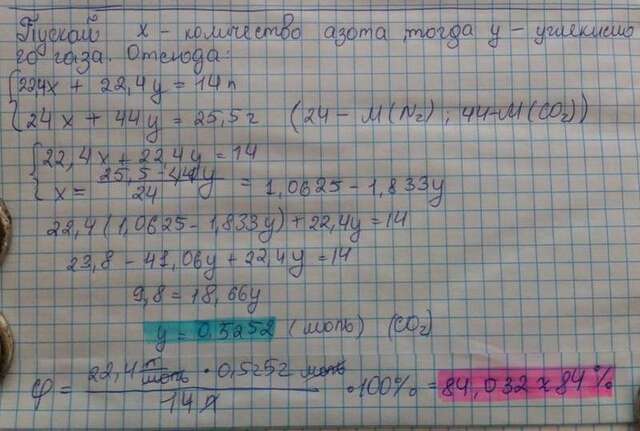 Пускай x - количество азота тогда y - углекисло
го газа. Отсюда:
{224x + 22,4y = 14л
{24x + 44y = 25,5г (24 - M(N₂) ; 44-M(CO₂))
{22,4x + 22,4y = 14
{x = (25,5 - 44y)/24 = 1,0625 - 1,833y
22,4(1,0625 - 1,833y) + 22,4y = 14
23,8 - 41,06y + 22,4y = 14
9,8 = 18,66y
y = 0,5252 (моль) (CO₂)
φ = (22,4 л/моль · 0,5252 моль)/(14 л) · 100% = 84,032 ≈ 84%